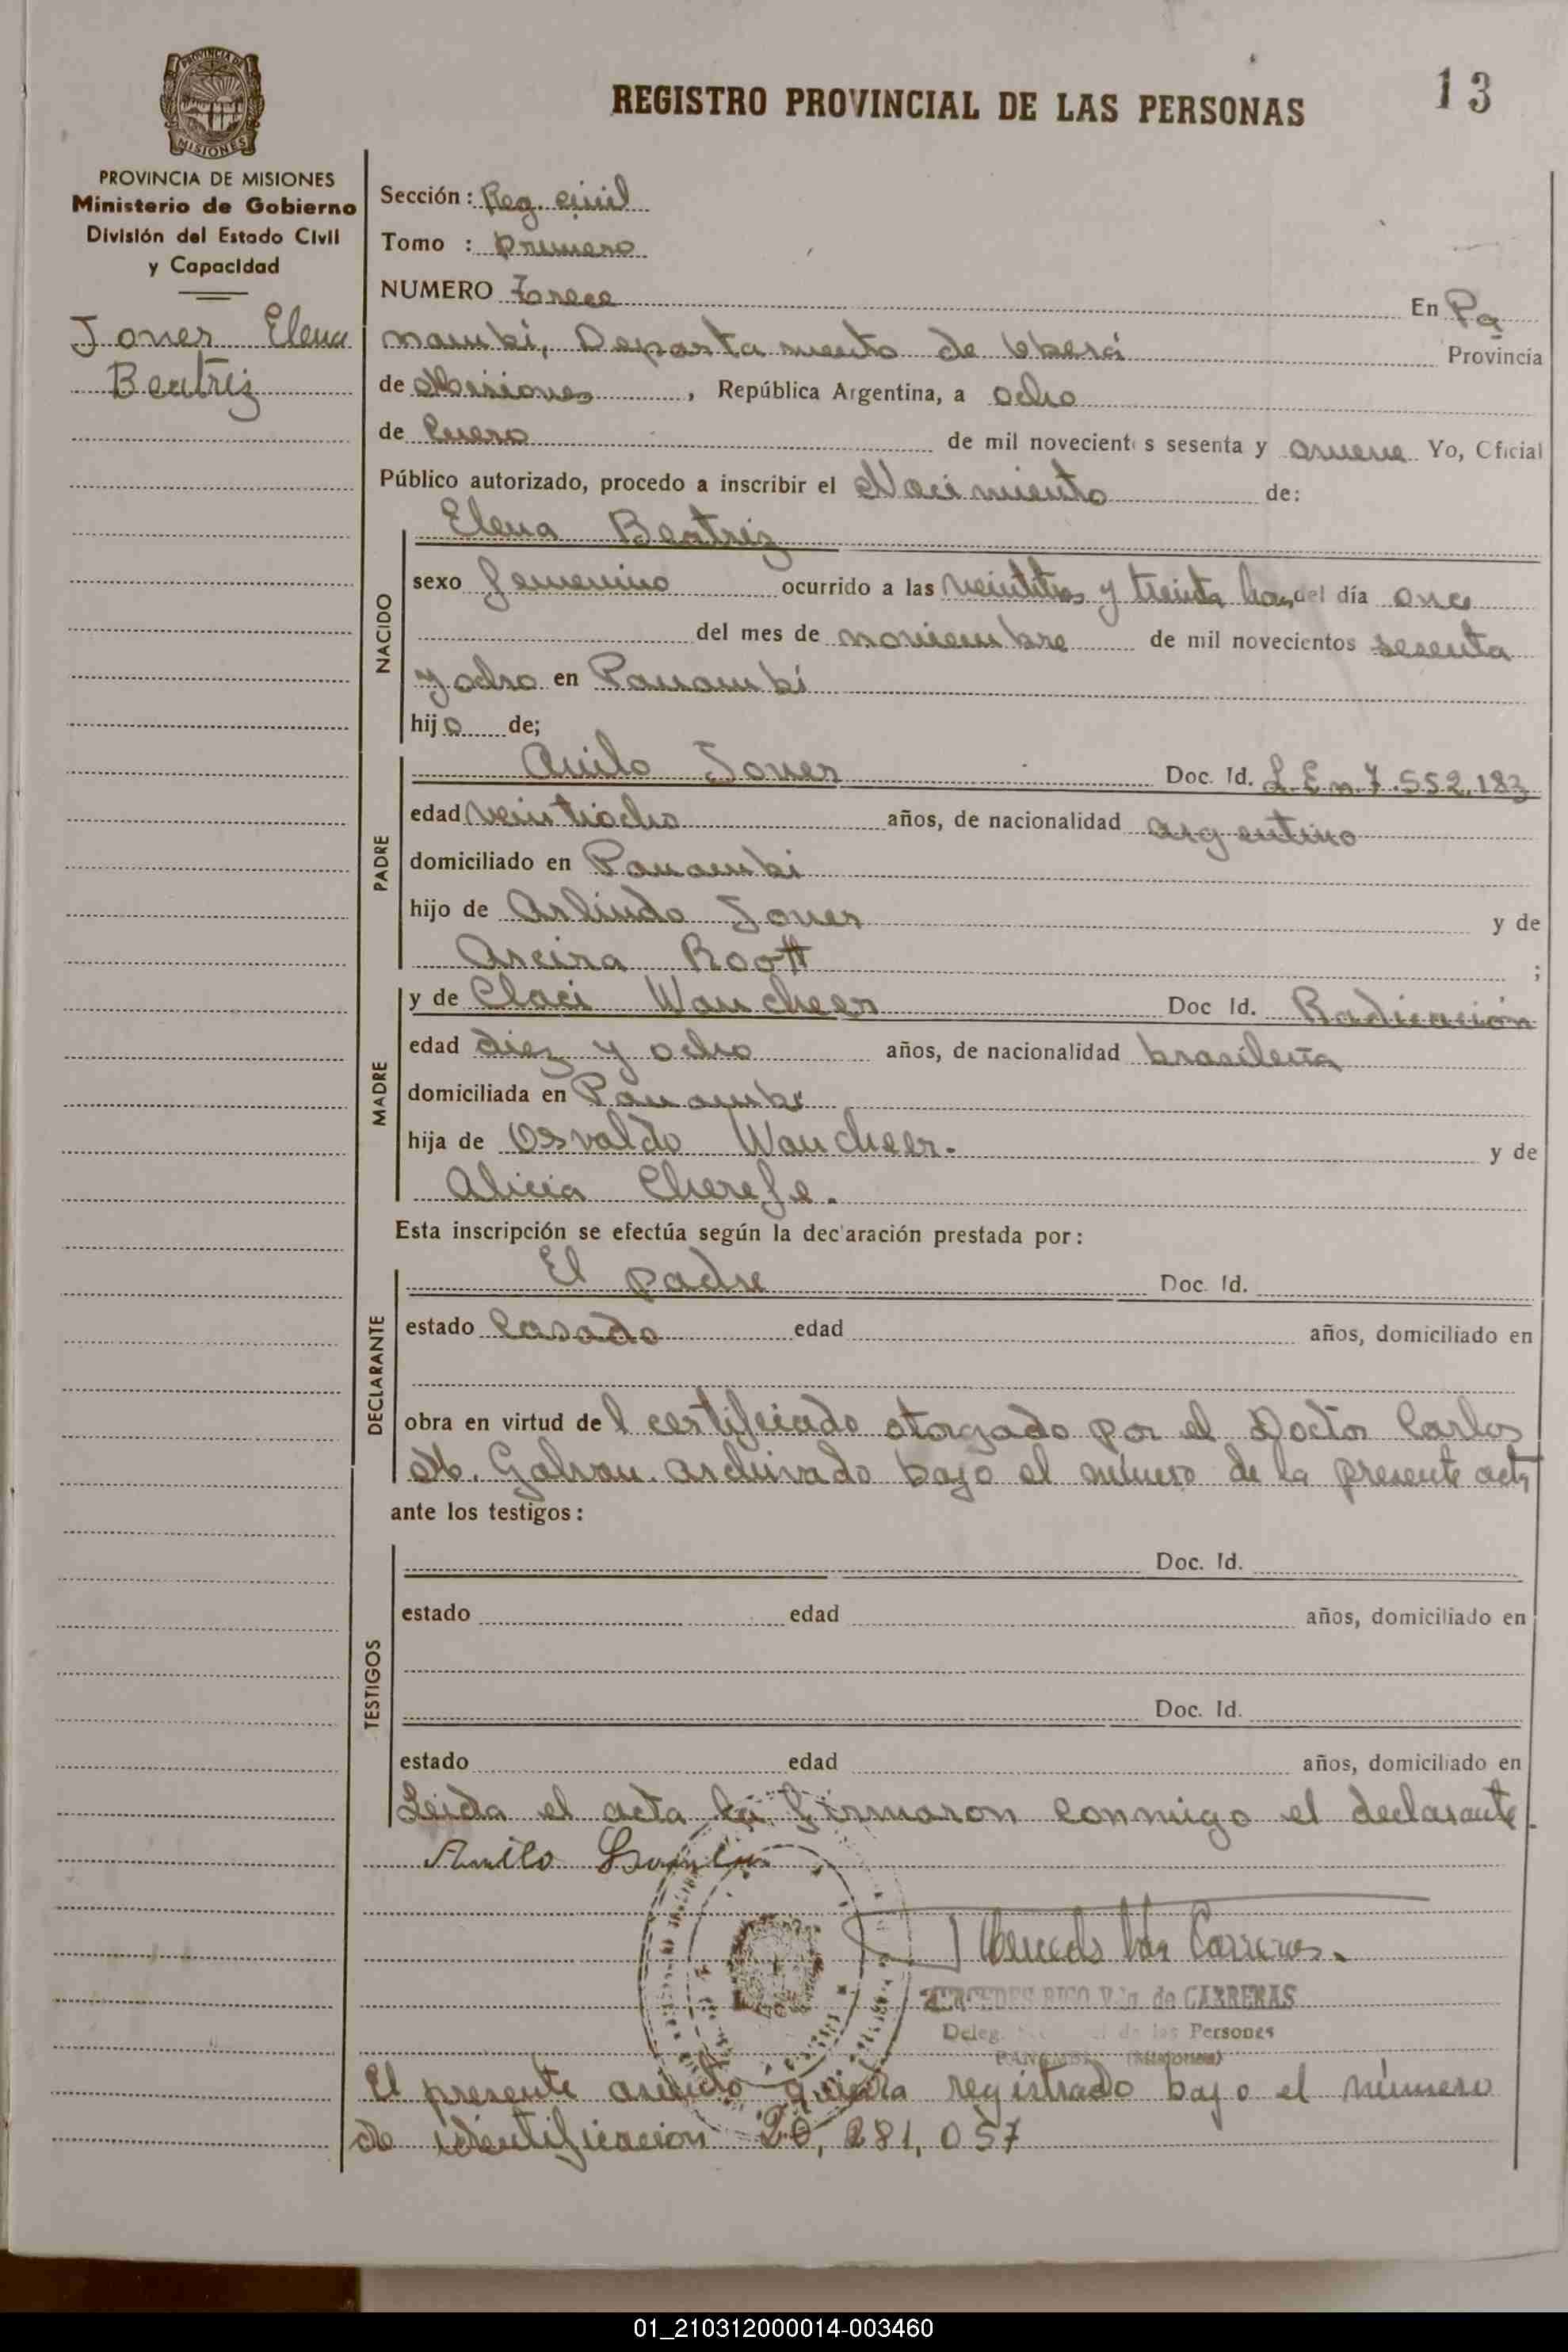 PROVINCIA DE MISIONES
REGISTRO PROVINCIAL DE LAS PERSONAS
13
PROVINCIA DE MISIONES
Ministerio de Gobierno
División del Estado Civil
y Capacidad
Joner Elena
Beatriz
Sección: Reg. civil
Tomo : Primero
NUMERO Trece En Pa
nambi, Departamento de Oberá Provincia
de Misiones, República Argentina, a ocho
de Enero de mil novecientos sesenta y nueve Yo, Oficial
Público autorizado, procedo a inscribir el Nacimiento de:
NACIDO
Elena Beatriz
sexo femenino ocurrido a las veintitres y treinta horas del día once
del mes de noviembre de mil novecientos sesenta
y ocho en Panambi
hijo de;
PADRE
Anilo Joner Doc. Id. L E n 7.552.183
edad veintiocho años, de nacionalidad argentino
domiciliado en Panambi
hijo de Arlindo Joner y de
Areira Roott ;
MADRE
y de Claci Wancheer Doc Id. Radicación
edad diez y ocho años, de nacionalidad brasileña
domiciliada en Panambi
hija de Osvaldo Wancheer. y de
Alicia Cherefe.
Esta inscripción se efectúa según la declaración prestada por:
DECLARANTE
El padre Doc. Id.
estado Casado edad años, domiciliado en
obra en virtud del certificiado otorgado por el Doctor Carlos
M. Galvan archivado bajo el número de la presente acta
ante los testigos:
TESTIGOS
Doc. Id.
estado edad años, domiciliado en
Doc. Id.
estado edad años, domiciliado en
Leida el acta la firmaron conmigo el declarante.
Anilo
Carreras.
MERCEDES RICO Vda. de CARRERAS
Deleg. de las Persones
PANAMBI (Misiones)
El presente asiento queda registrado bajo el número
de identificacion 20,281,057
01_210312000014-003460